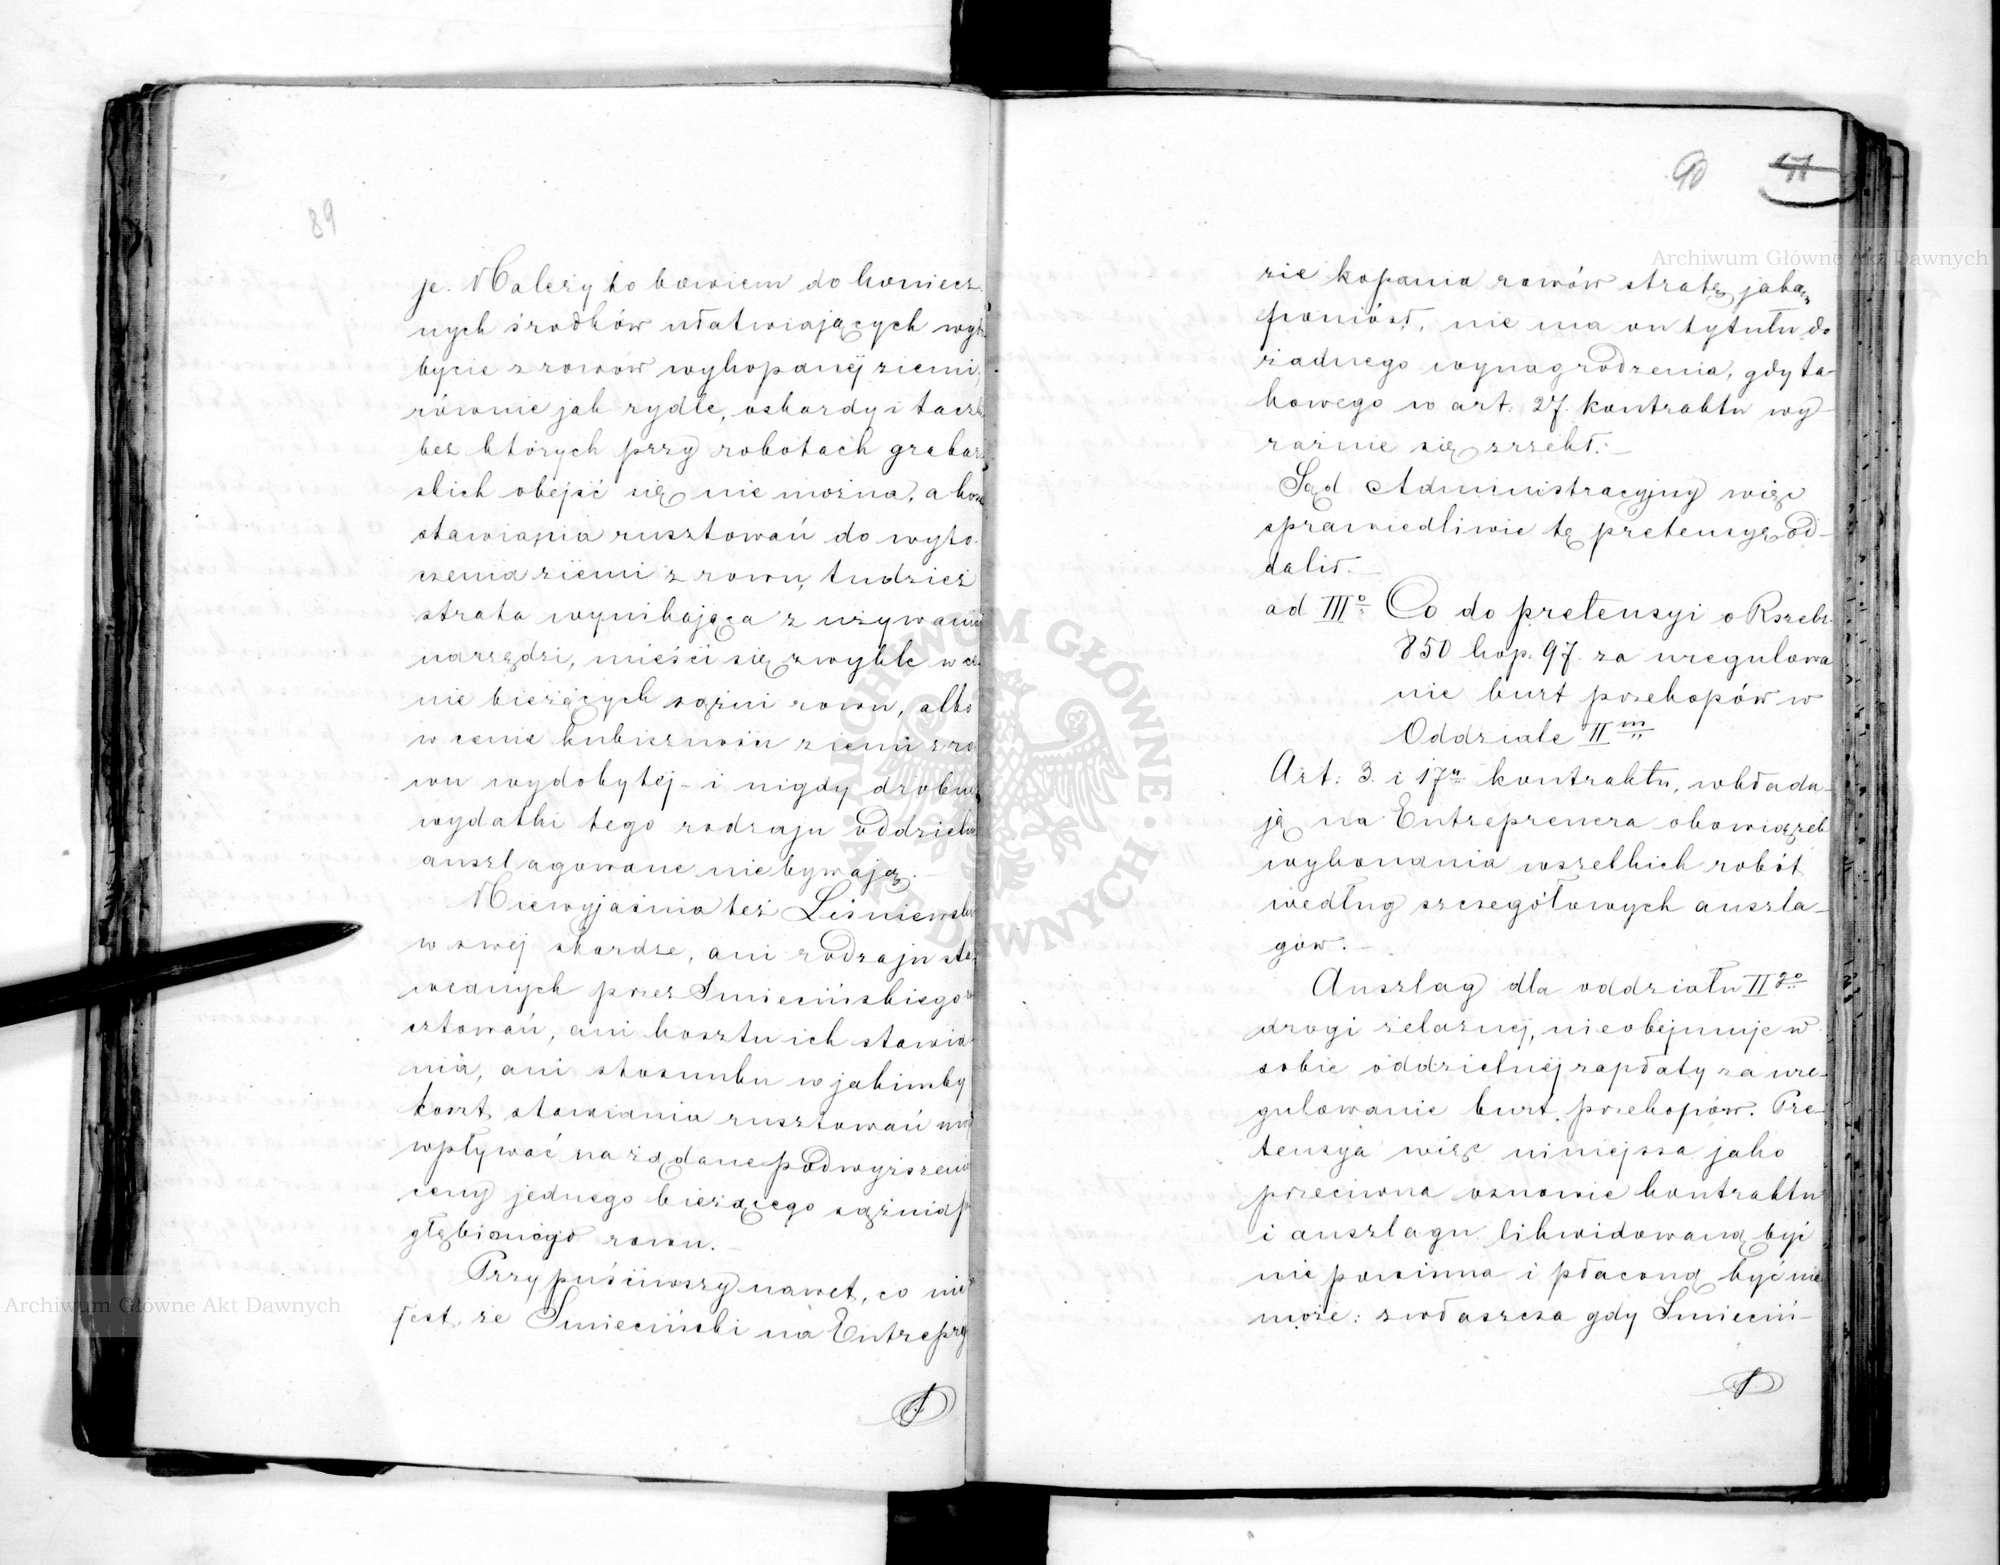 89
je. Należy to bowiem do koniecz-
nych środków ułatwiających wydo-
bycie z rowów wykopanéj ziemi,
równie jak rydle, oskardy i taczki
bez których przy robotach grabar-
skich obejść się nie można, a koszt
stawiania rusztowań do wyto-
czenia ziemi z rowu, tudzież
strata wynikająca z używania
narzędzi, mieści się zwykle w ce-
nie bieżących sążni rowu, albo
w cenie kubiczności ziemi z ro-
wu wydobytéj - i nigdy drobne
wydatki tego rodzaju oddzielnie
anszlagowane nie bywają.
Niewyjaśnia też Liśniewski
w swéj skardze, ani rodzaju sta-
wianych przez Smiecińskiego ru-
sztowań, ani kosztu ich stawia-
nia, ani stosunku w jakimby
koszt stawiania rusztowań mógł
wpływać na żądane podwyższenie
ceny jednego bieżącego sążnia po-
głębionego rowu.
Przypuściwszy nawet, co nie
jest, że Smieciński na Entrepry
90 171
zie kopania rowów stratę jaką
poniósł, nie ma on tytułu do
żadnego wynagrodzenia, gdy ta-
kowego w art: 27. kontraktu wy-
raźnie się zrzekł:
Sąd Administracyjny więc
sprawiedliwie tę pretensyę od-
dalił.
ad III° Co do pretensyi o Rsrebr.
850 kop. 97. za uregulowa
nie burt przekopów w
Oddziale II m
Art: 3. i 17y kontraktu, wkłada-
ją na Entreprenera obowiązek
wykonania wszelkich robót
według szczegółowych anszla-
gów.
Anszlag dla oddziału II go
drogi żelaznéj, nieobejmuje w
sobie oddzielnéj zapłaty za ure-
gulowanie burt przekopów. Pre-
tensya więc niniejsza jako
przeciwna osnowie kontraktu
i anszlagu likwidowaną być
nie powinna i płaconą być nie
może: zwłaszcza gdy Smieciń-
Archiwum Główne Akt Dawnych
Archiwum Główne Akt Dawnych
ARCHIWUM GŁÓWNE AKT DAWNYCH